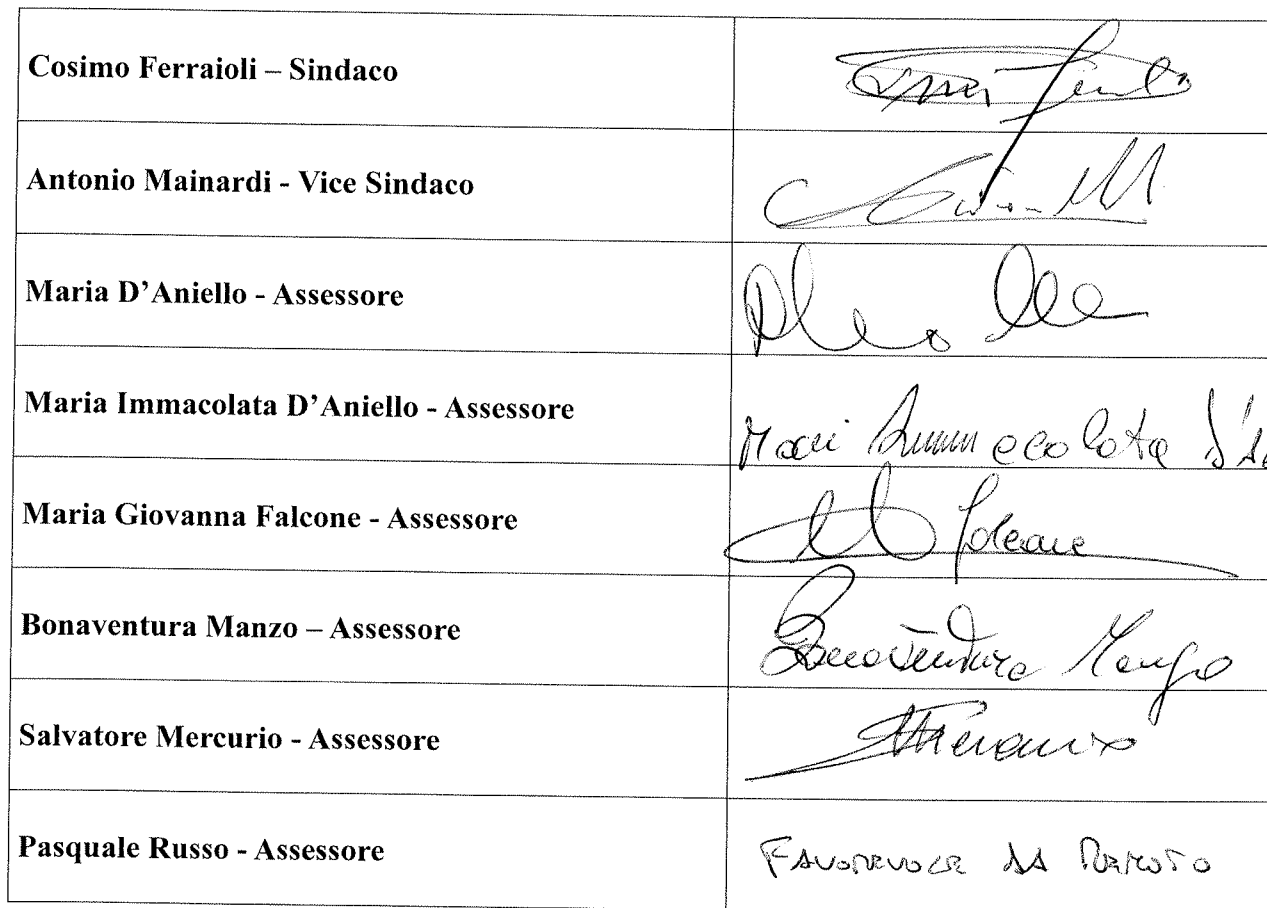 Cosimo Ferraioli – Sindaco
Antonio Mainardi - Vice Sindaco
Maria D'Aniello - Assessore
Maria Immacolata D'Aniello - Assessore
Maria Immacolata
Maria Giovanna Falcone - Assessore
Falcone
Bonaventura Manzo – Assessore
Bonaventura Manzo
Salvatore Mercurio - Assessore
Mercurio
Pasquale Russo - Assessore
FAVOREVOLE DA REMOTO